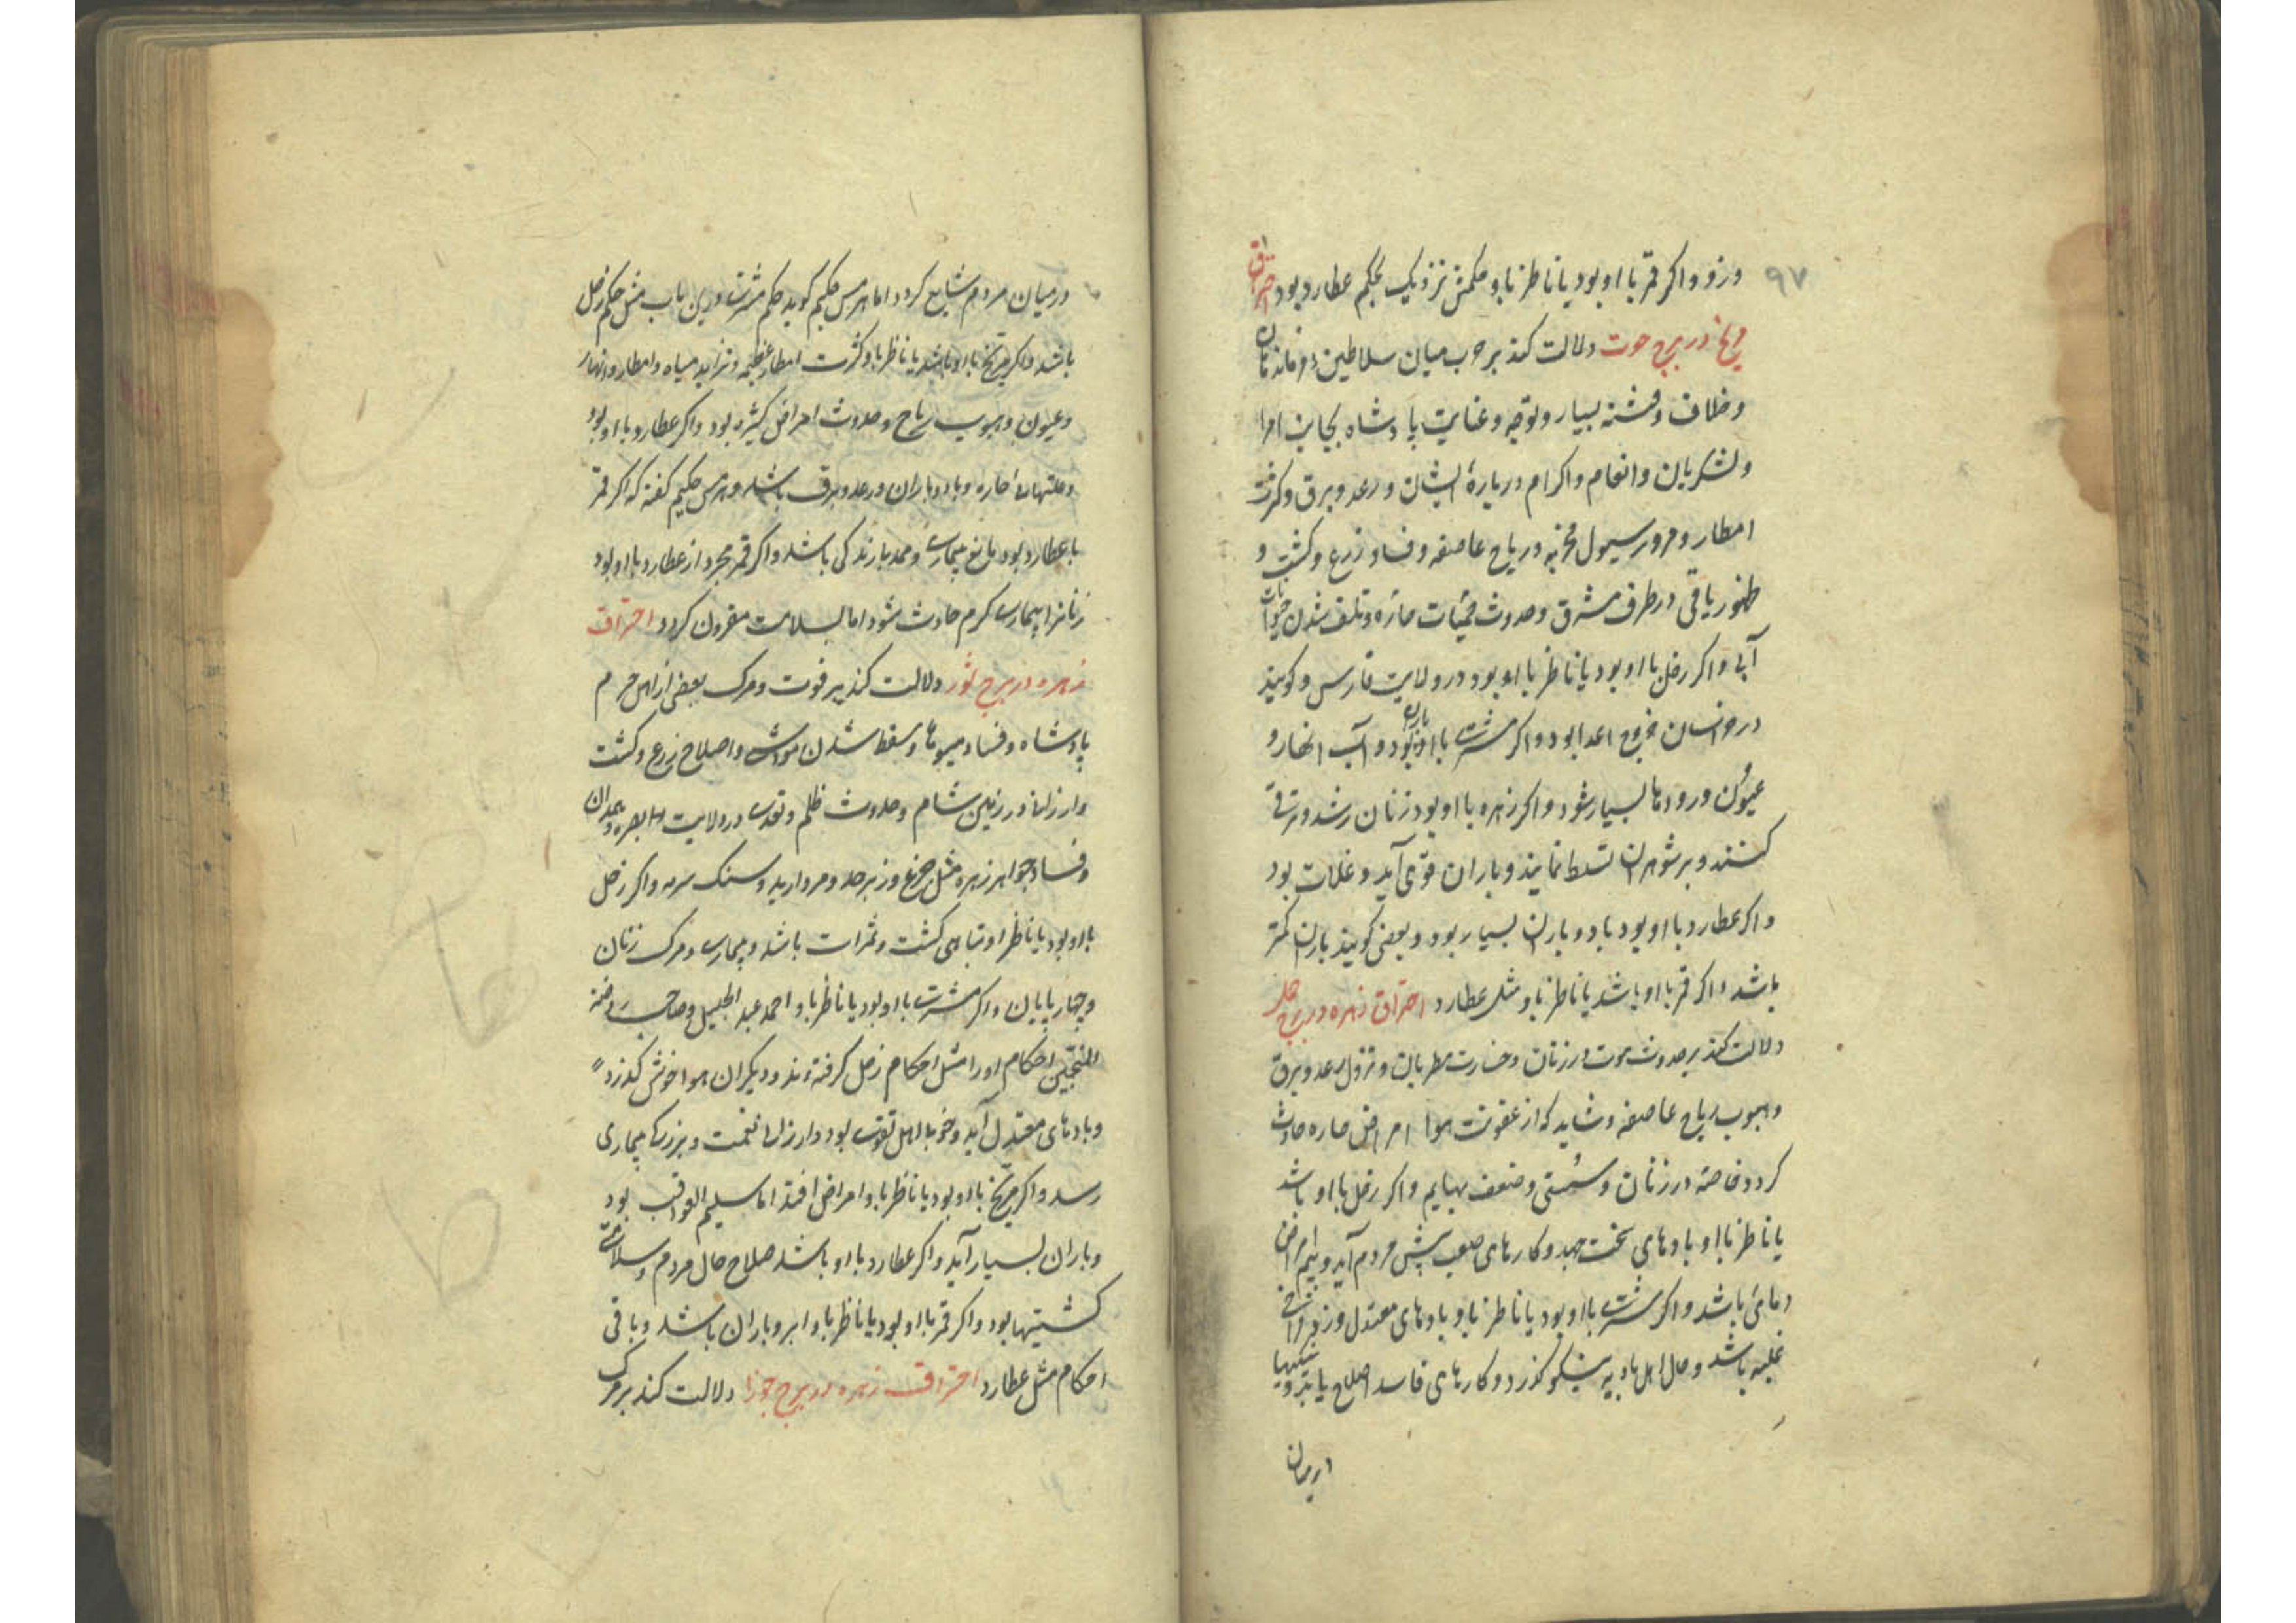 ۹۷
وزد و اکر قمر با او بود یا ناظر باو حکمش نزدیک بحکم عطارد بود احتراق
مریخ در برج حوت دلالت کند بر حرب میان سلاطین و فرماندهان
و خلاف و فتنه بسیار و توجه و عنایت پادشاه بجانب امرا
و لشکریان و انعام و اکرام درباره ایشان و رعد و برق و کثرت
امطار و مرور سیول مخربه و ریاح عاصفه و فساد زرع و کشت و
ظهور یاقی در طرف مشرق و حدوث حمیّات حاره و تلف شدن حیوانات
آبی و اکر زحل با او بود یا ناظر باو بود در ولایت فارس و کویند
در خراسان خروج اعدا بود و اکر مشتری با او بود باران و آب انهار و
عیون و رودها بسیار شود و اکر زهره با او بود زنان رشد و ترقی
کنند و بر شوهران تسلط نمایند و باران قوی آید و غلات بود
و اکر عطارد با او بود باد و باران بسیار بود و بعضی کویند باران کمتر
باشد و اکر قمر با او باشد یا ناظر باو مثل عطارد احتراق زهره در برج حمل
دلالت کند بر حدوث موت در زنان و خسارت مطربان و نزول رعد و برق
و هبوب ریاح عاصفه و شاید که از عفونت هوا امراض حاره حادث
کردد خاصه در زنان و سستی و ضعف بهایم و اکر زحل با او باشد
یا ناظر با او بادهای سخت جهد و کارهای صعب پیش مردم آید و بیم امراض
دماغی باشد و اکر مشتری با او بود یا ناظر باو بادهای معتدل وزد فراخی
غله باشد و حال اهل بادیه نیکو کذرد و کارهای فاسد اصلاح یابد و نیکیها
درمیان
درمیان مردم شایع کردد اما هرمس حکیم کوید حکم مشتری درین باب مثل حکم زحل
باشد و اکر مریخ با او باشد یا ناظر باو کثرت امطار عظیمه و تزاید میاه و امطار و انهار
و عیون و هبوب ریاح و حدوث امراض کثیره بود و اکر عطارد با او بود
و علتهاء حاره و باد و باران و رعد و برق باشد و هرمس حکیم کفته که اکر قمر
با عطارد بود مانع بیماری و ممد بازندکی باشد و اکر قمر مجرد از عطارد با او بود
زنانرا بیماری کرم حادث شود اما بسلامت مقرون کردد احتراق
زهره در برج ثور دلالت کند بر فوت و مرک بعضی از اهل حرم
پادشاه و فساد میوها و سقط شدن مواشی و اصلاح زرع و کشت
و ارزانی در زمین شام و حدوث ظلم و تعدی در ولایت بصره و همدان
و فساد جواهر زهره مثل جزع و زبرجد و مروارید و سنک سرمه و اکر زحل
با او بود یا ناظر او تباهی کشت و ثمرات باشد و بیماری و مرک زنان
و چهارپایان و اکر مشتری با او بود یا ناظر باو احمد عبد الجلیل و صاحب روضة
المنجّمین احکام او را مثل احکام زحل کرفته‌اند و دیکران هوا خوش کذرد
و بادهای معتدل آید و خوبا اهل تقوی بود و ارزانی نعمت و بزرکی بیماری
رسد و اکر مریخ با او بود یا ناظر باو امراض افتد اما سلیم العواقب بود
و باران بسیار آید و اکر عطارد با او باشد صلاح حال مردم و سلامتی
کشتیها بود و اکر قمر با او بود یا ناظر باو ابر و باران باشد و باقی
احکام مثل عطارد احتراق زهره در برج جوزا دلالت کند بر مرک